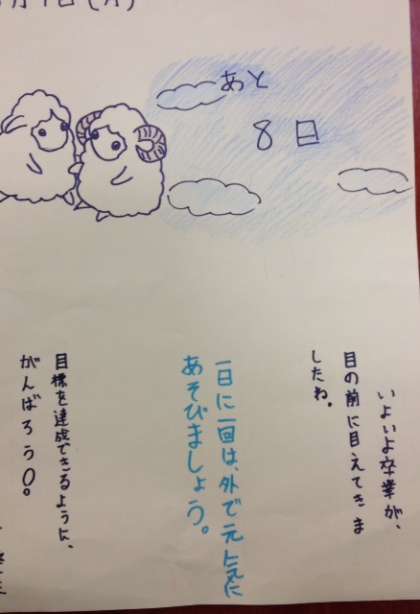 あと
8日
いよいよ卒業が、
目の前に見えてきま
したね。
一日に一回は、外で元気に
あそびましょう。
目標を達成できるように、
がんばろう0。